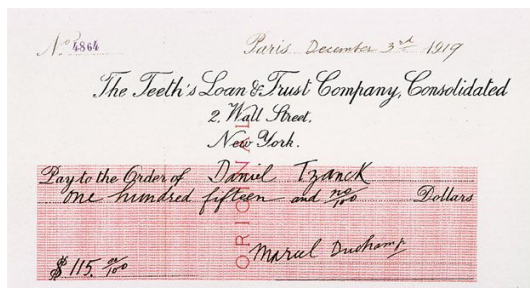 No. 4864
Paris December 3rd 1919
The Teeth's Loan & Trust Company, Consolidated
2, Wall Street,
New York.
Pay to the Order of Daniel Tzanck
one hundred fifteen and no/100 Dollars
ORIGINAL
$ 115. no/100 Marcel Duchamp